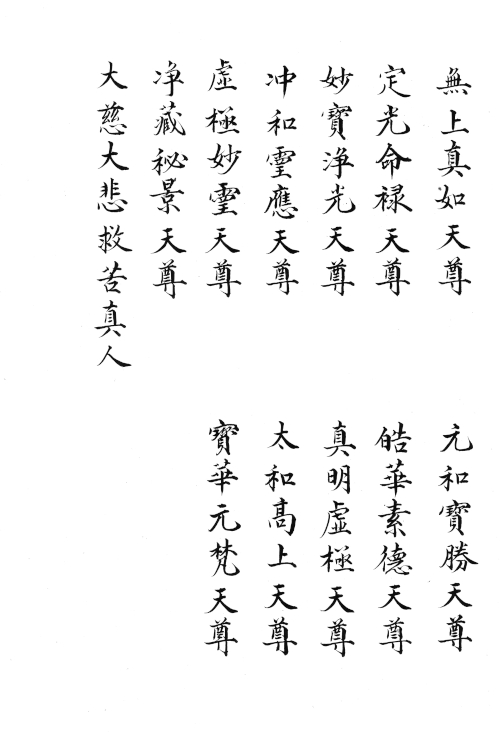 無上真如天尊
元和寶勝天尊
定光命禄天尊
皓華素德天尊
妙寶浄光天尊
真明虛極天尊
冲和靈應天尊
太和髙上天尊
虛極妙靈天尊
寶華元梵天尊
浄藏祕景天尊
大慈大悲救苦真人